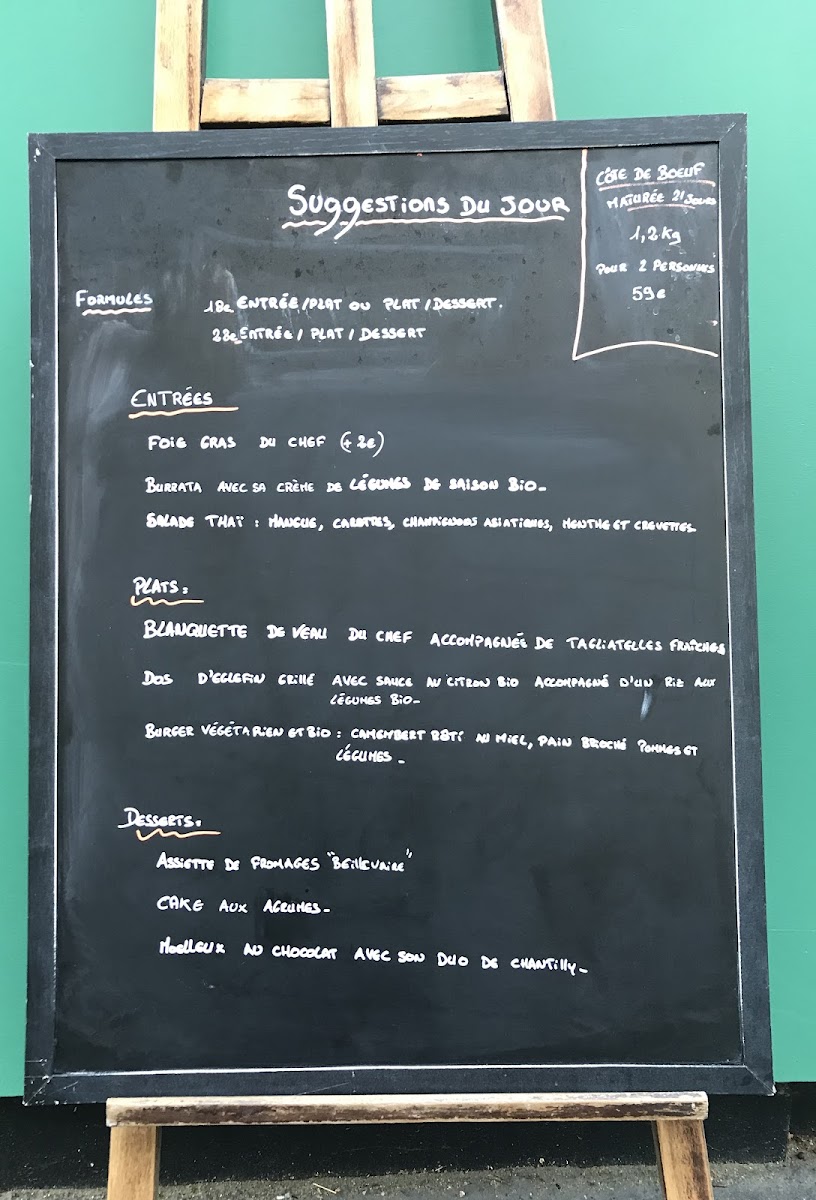 Suggestions du jour
Côte de boeuf
maturée 21 jours
1,2kg
pour 2 personnes
59€
Formules
18€ Entrée/Plat ou Plat/Dessert.
23€ Entrée/Plat/Dessert
Entrées
Foie gras du chef (+2€)
Burrata avec sa crème de légumes de saison bio_
Salade Thaï : mangue, carottes, champignons asiatiques, menthe et crevettes
Plats:
Blanquette de veau du chef accompagnée de tagliatelles fraîches
Dos d'eglefin grillé avec sauce au citron bio accompagné d'un riz aux
légumes bio_
Burger végétarien et bio : camembert rôti au miel, pain brioché pommes et
légumes_
Desserts:
Assiette de fromages "Beillevaire"
Cake aux agrumes_
Moelleux au chocolat avec son duo de chantilly_